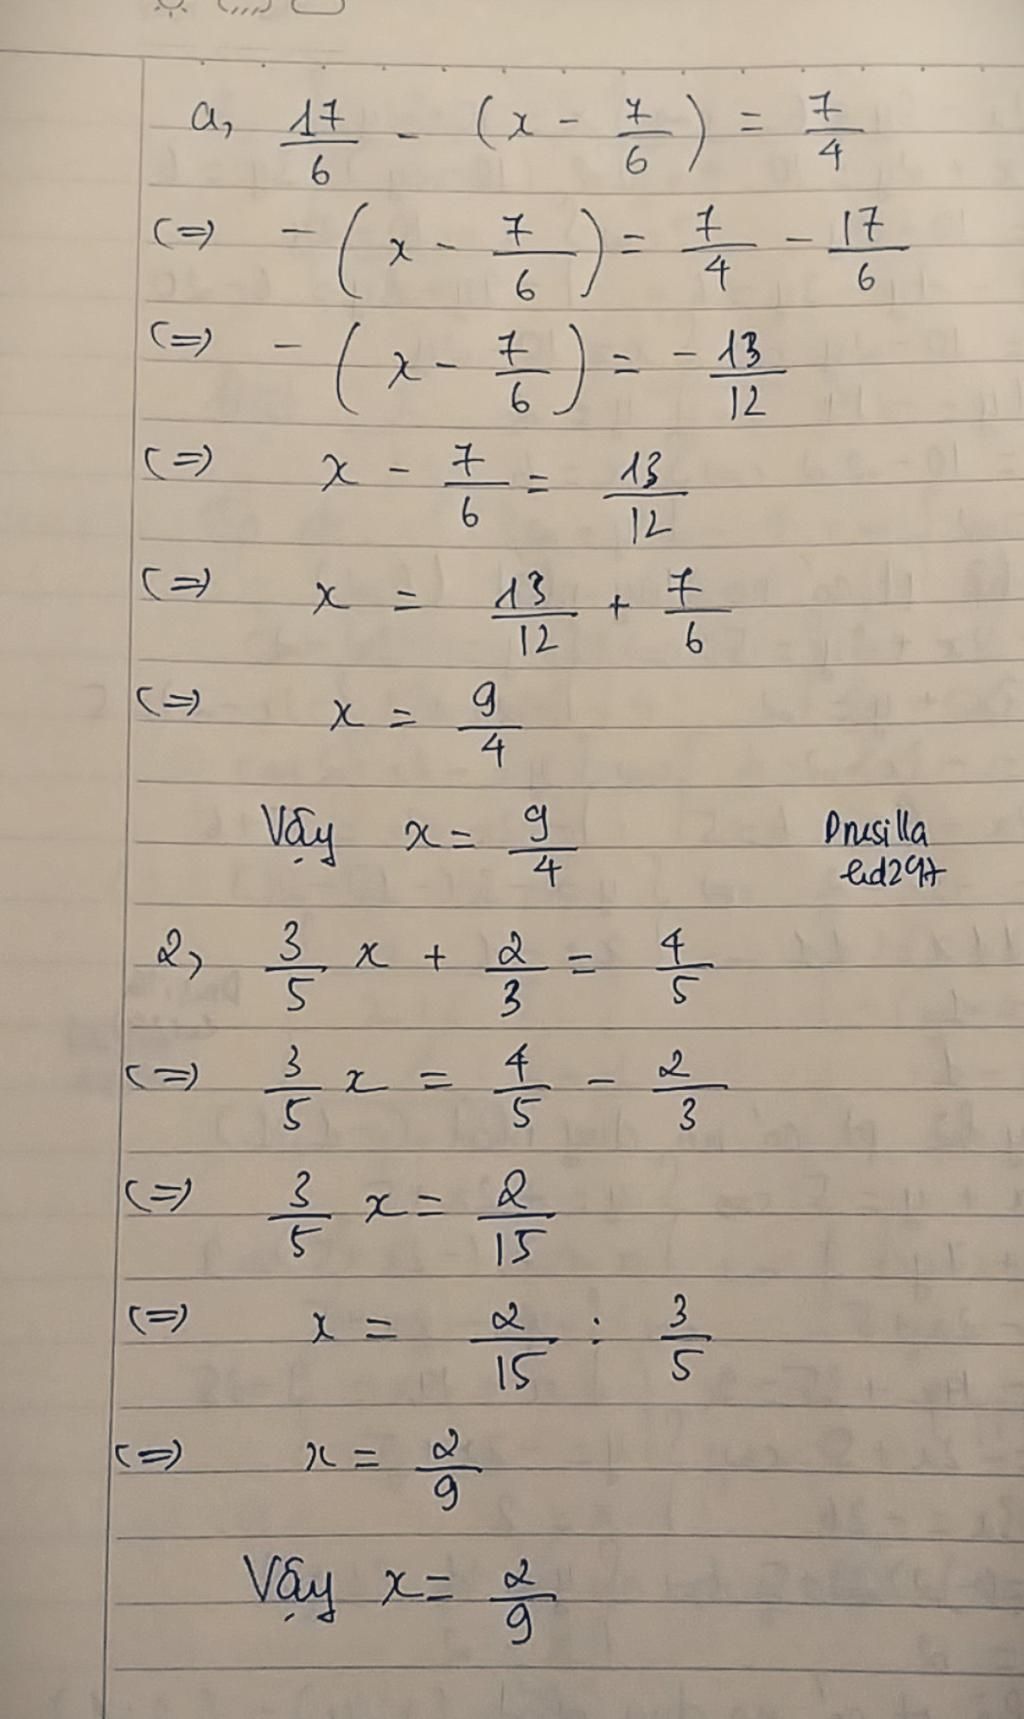 a, 17/6 - (x - 7/6) = 7/4
(=) - (x - 7/6) = 7/4 - 17/6
(=) - (x - 7/6) = - 13/12
(=) x - 7/6 = 13/12
(=) x = 13/12 + 7/6
(=) x = 9/4
Vậy x = 9/4
Drusilla
2, 3/5 x + 2/3 = 4/5
(=) 3/5 x = 4/5 - 2/3
(=) 3/5 x = 2/15
(=) x = 2/15 : 3/5
(=) x = 2/9
Vậy x = 2/9